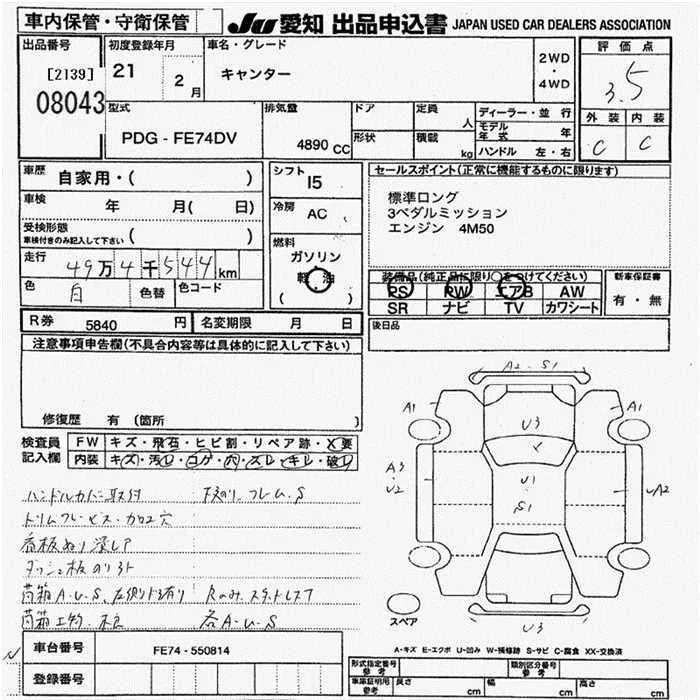 車内保管・守衛保管
JU 愛知 出品申込書 JAPAN USED CAR DEALERS ASSOCIATION
出品番号
[2139]
08043
初度登録年月
21 2月
車名・グレード
キャンター
2WD
・
4WD
評価点
3.5
外装 内装
C C
型式
PDG - FE74DV
排気量
4890 CC
ドア
形状
定員 人
積載 kg
ディーラー・並行
モデル年式 年
ハンドル 左・右
車歴 自家用・( )
車検 年 月( 日)
受検形態
車検付きのみ記入して下さい ( )
走行 49万4千544km
色 白 色替 色コード
シフト
I5
冷房 AC
燃料
ガソリン
軽油
( )
セールスポイント(正常に機能するものに限ります)
標準ロング
3ペダルミッション
エンジン 4M50
装備品(純正品に限り○をつけてください)
PS PW エアB AW
SR ナビ TV カワシート
新車保証書
有・無
後日品
R券 5840 円 名変期限 月 日
注意事項申告欄(不具合内容等は具体的に記入して下さい)
修復歴 有 (箇所 )
検査員
記入欄
FW キズ・飛石・ヒビ割・リペア跡・X要
内装 キズ・汚レ・コゲ・穴・スレ・キレ・破レ
ハンドルカバー取付 下廻り、フレームS
ダッシュ板のり外
A2 S1
A1
A1
U3
A3
・
U2
U1
S1
A2
U3
スペア
A-キズ E-エクボ U-凹み W-補修跡 S-サビ C-腐食 XX-交換済
車台番号 FE74 - 550814
登録番号
形式指定番号
参考
類別区分番号
参考
車庫証明用
参考
長さ cm
幅 cm
高さ cm